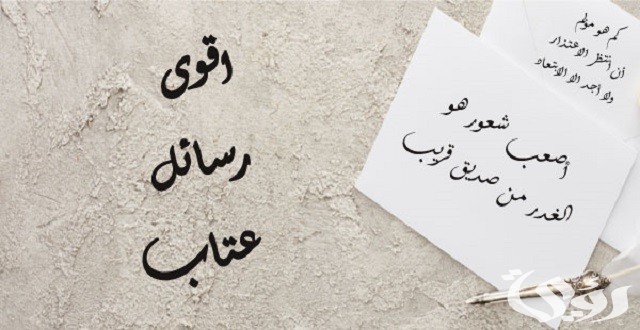 اقوى
رسائل
عتاب
كم هو مؤلم
أن أنتظر الاعتذار
ولا أجد الا الابتعاد
أصعب شعور هو
الغدر من صديق قريب